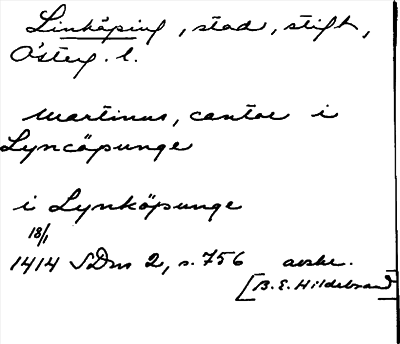 Linköping, stad, stift,
Österg. l.
Martinus, cantor i
Lyncöpunge
i Lynköpunge
18/1
1414 SDns 2, s. 756 avskr.
[B. E. Hildebrand]